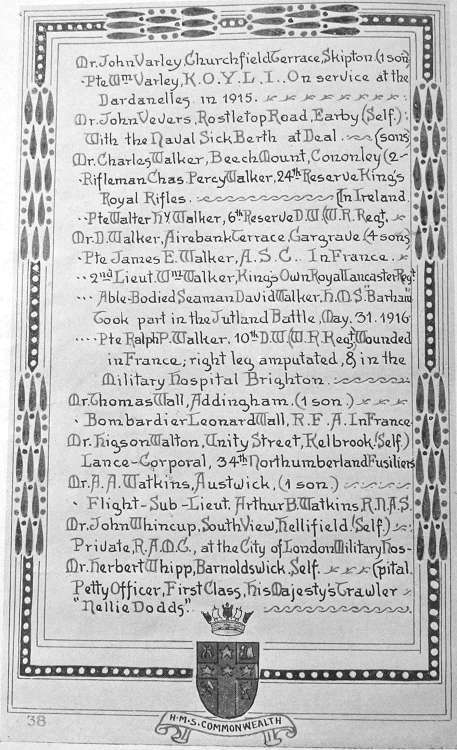 Mr. John Varley, Churchfield Terrace, Skipton. (1 son)
· Pte Wm Varley, K.O.Y.L.I. On service at the
Dardanelles in 1915.
Mr. John Vevers, Rostletop Road, Earby (Self.) :
With the Naval Sick Berth at Deal. (sons
Mr. Charles Walker, Beech Mount, Cononley (2-
· Rifleman Chas. Percy Walker, 24th Reserve King's
Royal Rifles. (In Ireland.
·· Pte Walter Hy Walker, 6th Reserve D.W. (W.R. Regt.
Mr. D. Walker, Airebank Terrace, Gargrave (4 sons)
· Pte James E. Walker, A.S.C.. In France.
·· 2nd Lieut. Wm Walker, King's Own Royal Lancaster Regt
··· Able-Bodied Seaman David Walker, H.M.S. "Barham"
Took part in the Jutland Battle, May. 31. 1916
···· Pte Ralph P. Walker. 10th D.W. (W.R. Regt) Wounded
in France; right leg amputated, & in the
Military Hospital Brighton.
Mr Thomas Wall, Addingham. (1 son.)
· Bombardier Leonard Wall, R.F.A. In France
Mr. Higson Walton, Unity Street, Kelbrook. (Self.)
Lance-Corporal, 34th Northumberland Fusiliers
Mr. A. A. Watkins, Austwick, (1 son.)
· Flight-Sub-Lieut. Arthur B. Watkins, R.N.A.S.
Mr. John Whincup, South View, Hellifield (Self.)
Private, R.A.M.C., at the City of London Military Hos-
Mr. Herbert Whipp, Barnoldswick, Self. (pital.
Petty Officer, First Class, His Majesty's Trawler
"Nellie Dodds".
38
H.M.S. COMMONWEALTH